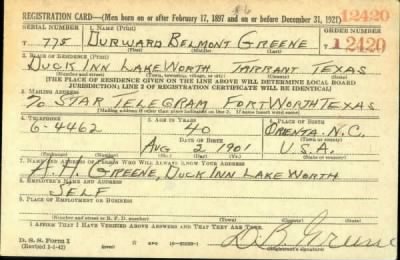 REGISTRATION CARD—(Men born on or after February 17, 1897 and on or before December 31, 1921) 12420
SERIAL NUMBER 1. NAME (Print) ORDER NUMBER
T 775 DURWARD BELMONT GREENE 12420
2. PLACE OF RESIDENCE (Print)
DUCK INN LAKE WORTH TARRANT TEXAS
(Number and street) (Town, township, village, or city) (County) (State)
[THE PLACE OF RESIDENCE GIVEN ON THE LINE ABOVE WILL DETERMINE LOCAL BOARD
JURISDICTION; LINE 2 OF REGISTRATION CERTIFICATE WILL BE IDENTICAL]
3. MAILING ADDRESS
% STAR TELEGRAM FORT WORTH TEXAS
[Mailing address if other than place indicated on line 2. If same insert word same]
4. TELEPHONE 5. AGE IN YEARS 6. PLACE OF BIRTH
6-4462 40 N.C.
DATE OF BIRTH
AUG 2 1901 U.S.A.
(Exchange) (Number) (Mo.) (Day) (Yr.) (State or country)
7. NAME AND ADDRESS OF PERSON WHO WILL ALWAYS KNOW YOUR ADDRESS
A. H. GREENE, DUCK INN LAKE WORTH
8. EMPLOYER'S NAME AND ADDRESS
SELF
9. PLACE OF EMPLOYMENT OR BUSINESS
(Number and street or R. F. D. number) (Town) (County) (State)
I AFFIRM THAT I HAVE VERIFIED ABOVE ANSWERS AND THAT THEY ARE TRUE.
D. S. S. Form 1
(Revised 1-1-42) GPO D. B. Greene
(Registrant's signature)